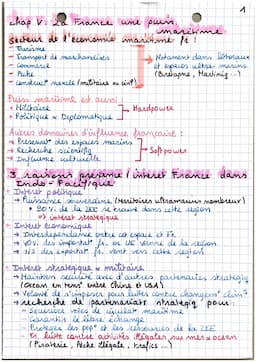 1
chap V : La France une puiss.
maritime
secteur de l'économie maritime fr :
- Tourisme
- Transport de marchandises
- Commerce
- Pêche
- Construct° navale (militaire ou civil)
→ Notament dans littoraux
et espaces ultra-marins
(Bretagne, Martiniq ...)
Puiss maritime est aussi :
+ Militaire
+ Politique & Diplomatique
→ Hardpower
Autres domaines d'influence française :
→ Préservat° des espaces marins
→ Recherche scientifiq
→ Influence culturelle
→ Softpower
3 raisons présence / intérêt France dans
Indo - Pacifique
→ Intérêt politique
→ Puissance souveraine (territoires ultramarins nombreux)
+ 90 % de la ZEE se trouve dans cette région
=> intérêt stratégique
→ Intérêt économique
→ Interdépendance entre cet espace et Fr.
→ 40% des importat° fr. ou UE venne de la région
→ des exportat° fr. vont vers cette région
→ Intérêt stratégique & militaire
→ Maintien sécurité avec d'autres partenaires stratégiq
(Océan en tens° entre Chine et USA)
→ Volonté de s'imposer pour lutter contre changemt clim.
→ recherche de partenariats stratégiq pour :
- Sécuriser voies de circulat° maritime
- Garantir le libre échange
- Protéger les pop° et les ressources de la ZEE
- En lutte contre act° illégales sur mer & océan
(Piraterie, Pêche illégale, trafics ...)